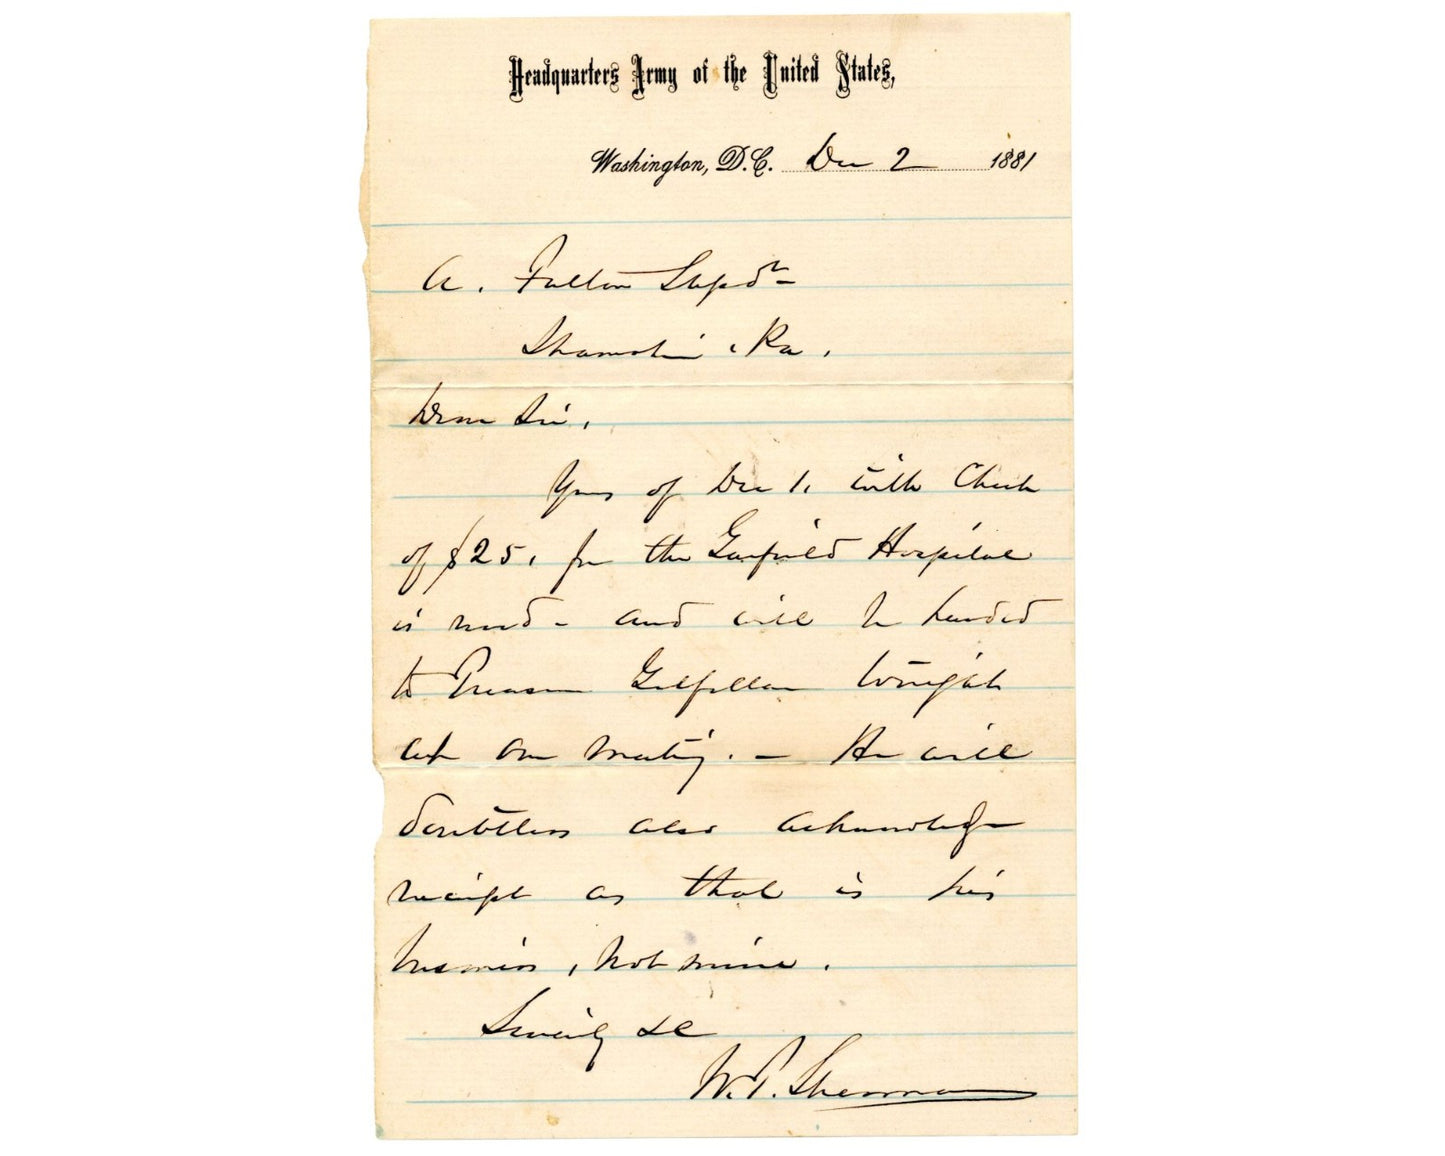 Headquarters Army of the United States,
Washington, D.C. Dec 2 1881
A. Fulton Supdt
Shamokin, Pa.
Dear Sir,
Yours of Dec 1, with Check
of $25, for the Garfield Hospital
is recd - and will be handed
to Treasurer Gilfillan tonight
at our meeting. - He will
doubtless also acknowledge
receipt as that is his
business, not mine.
Sincerely &c
W.T. Sherman